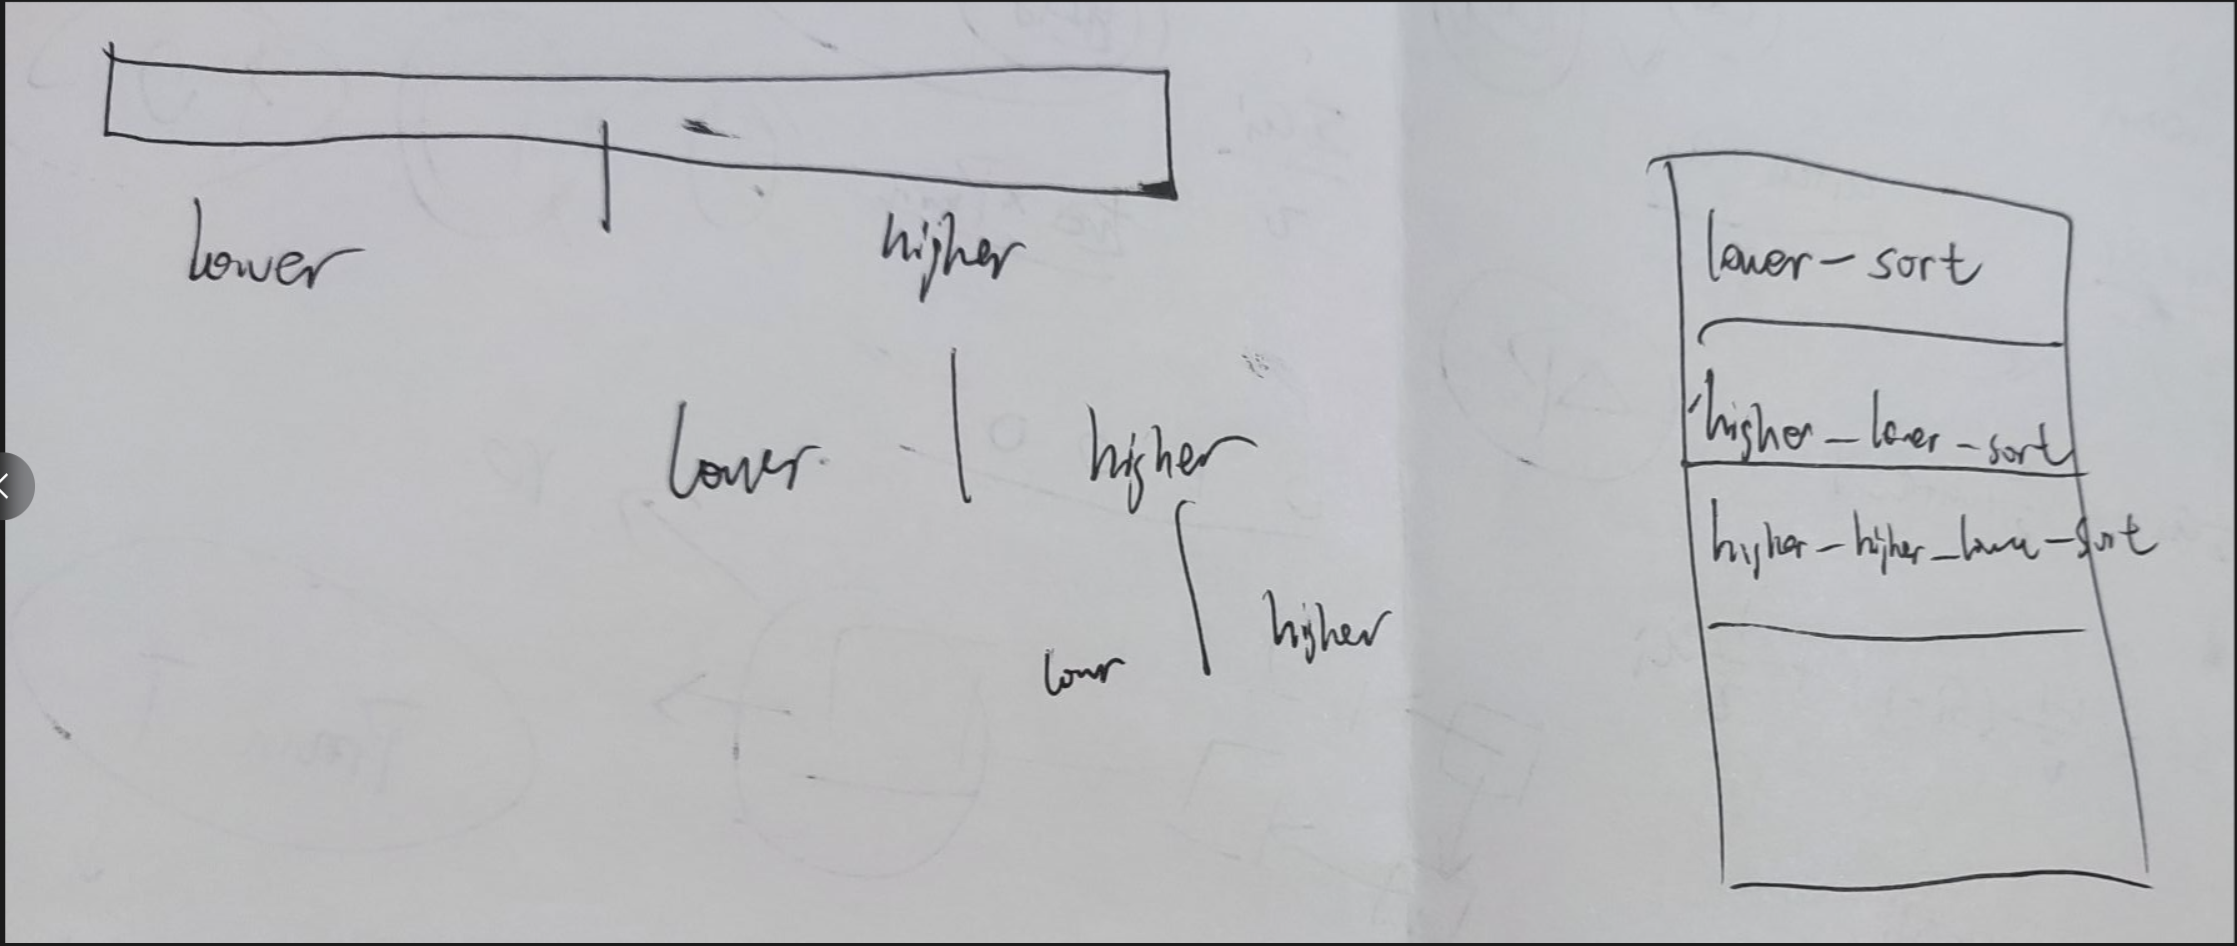 lower higher
lower higher
lower higher
lower - sort
higher - lower - sort
higher - higher - lower - sort